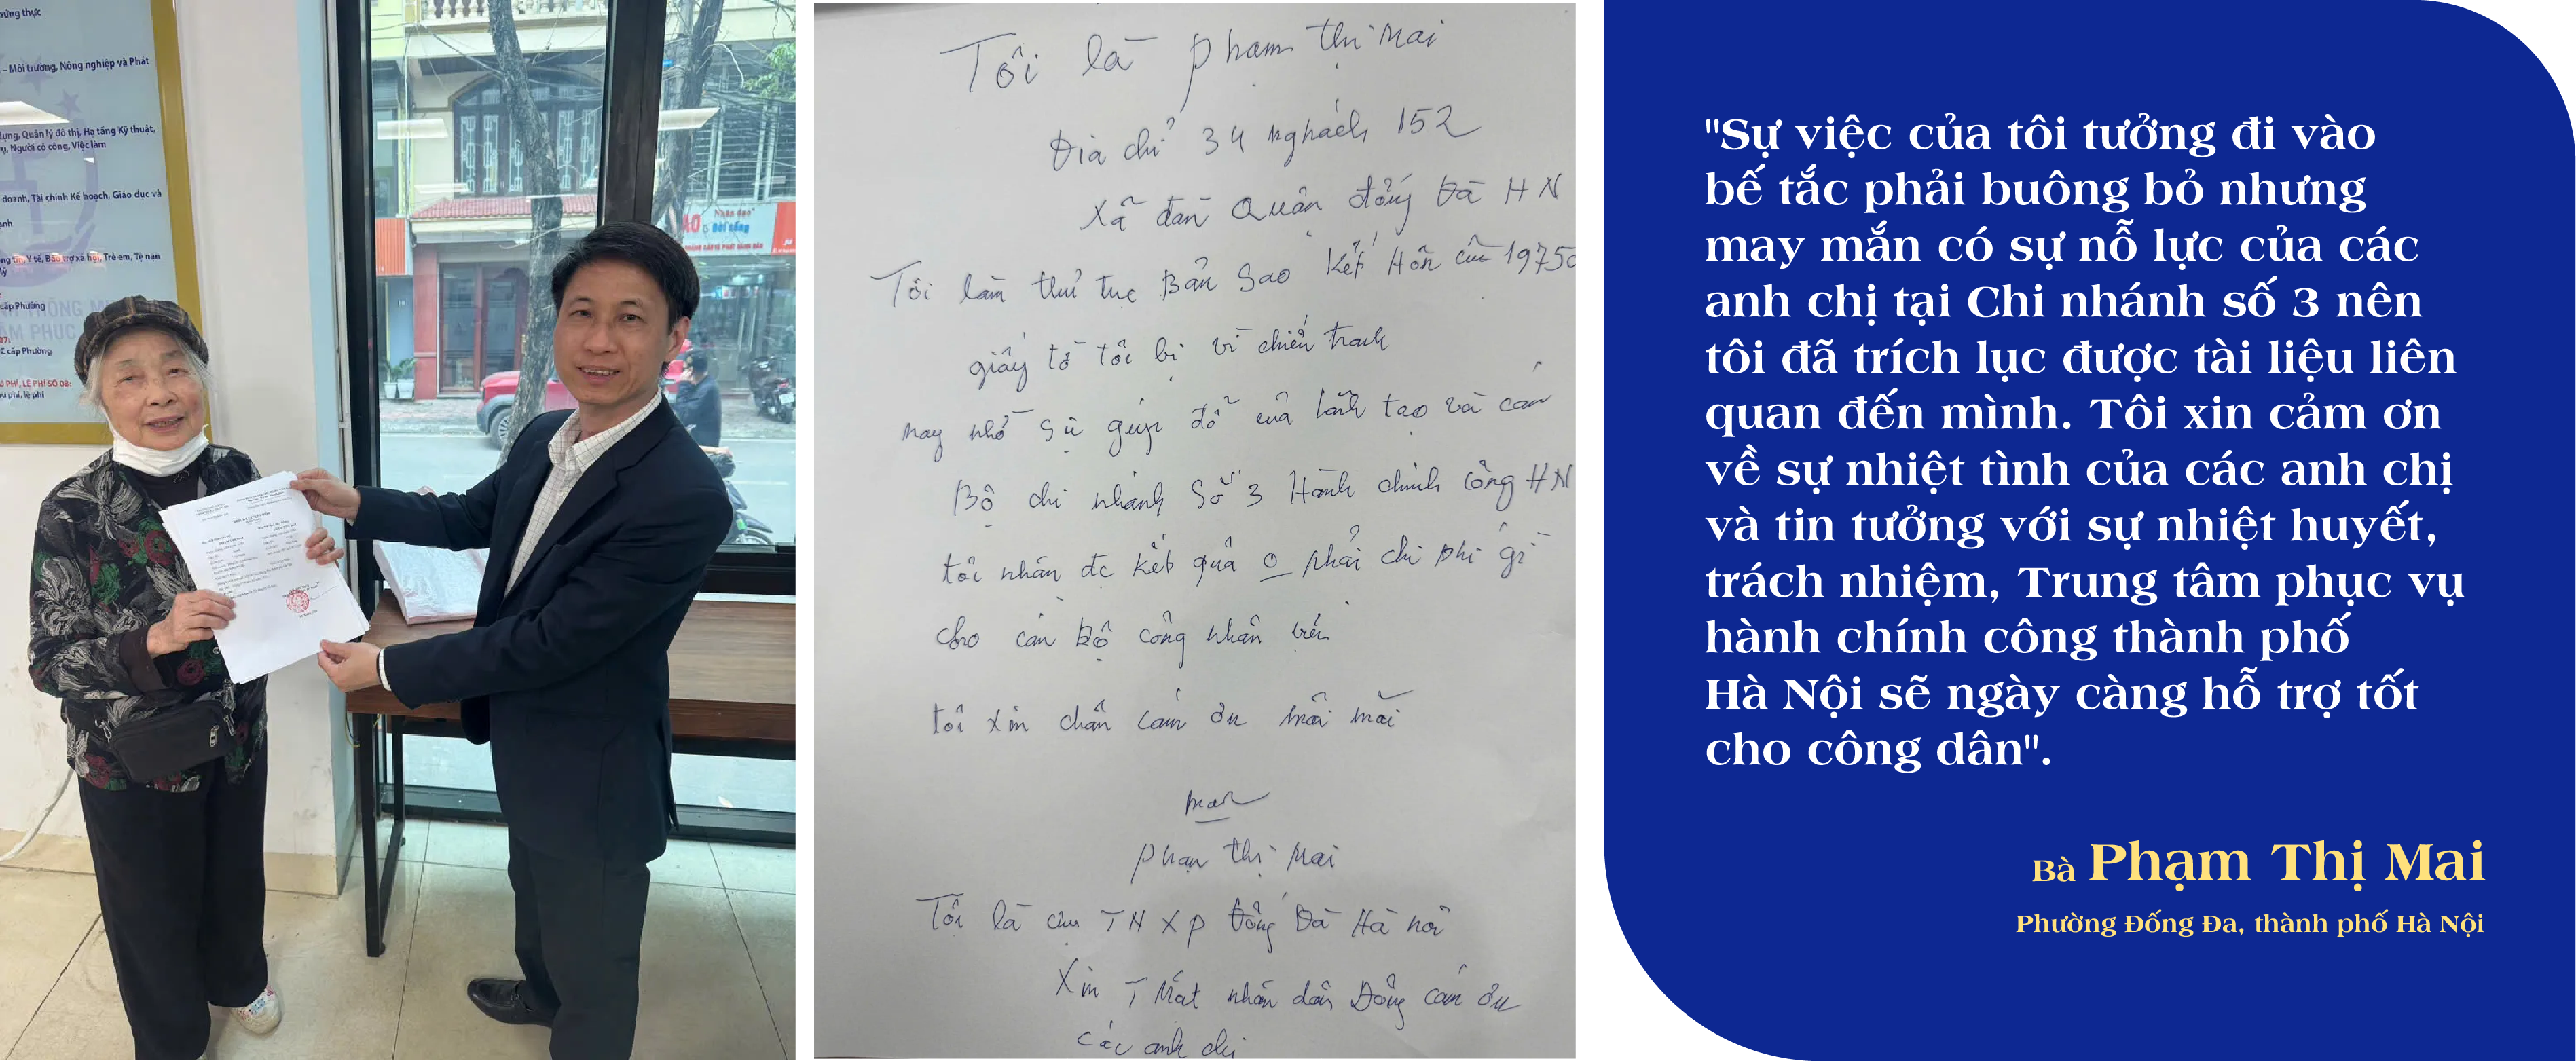 hứng thực
– Môi trường, Nông nghiệp và Phát
dựng, Quản lý đô thị, Hạ tầng Kỹ thuật,
ụ, Người có công, Việc làm
doanh, Tài chính Kế hoạch, Giáo dục và
ạnh
Y tế, Bảo trợ xã hội, Trẻ em, Tệ nạn
lý
cấp Phường
07:
C cấp Phường
U PHÍ, LỆ PHÍ SỐ 08:
u phí, lệ phí
Nhân đạo
Đời sống
Tôi là phạm thị Mai
Địa chỉ 34 nghách 152
Xã đàn Quận đống Đà HN
Tôi làm thủ tục Bản Sao Kết Hôn cũ 1975
giấy tờ tôi bị vì chiến tranh
may nhờ sự giúp đỡ của lãnh tạo và cán
Bộ chi nhánh Số 3 Hành chính công HN
tôi nhận đc kết quả 0 phải chi phí gì
cho cán Bộ công nhân viên
tôi xin chân cảm ơn mãi mãi
Mai
phạm thị Mai
Tôi là cựu TNXP Đống Đà Hà nội
Xin T Mặt nhân dân Đống cảm ơn
các anh chị
"Sự việc của tôi tưởng đi vào
bế tắc phải buông bỏ nhưng
may mắn có sự nỗ lực của các
anh chị tại Chi nhánh số 3 nên
tôi đã trích lục được tài liệu liên
quan đến mình. Tôi xin cảm ơn
về sự nhiệt tình của các anh chị
và tin tưởng với sự nhiệt huyết,
trách nhiệm, Trung tâm phục vụ
hành chính công thành phố
Hà Nội sẽ ngày càng hỗ trợ tốt
cho công dân".
Bà Phạm Thị Mai
Phường Đống Đa, thành phố Hà Nội